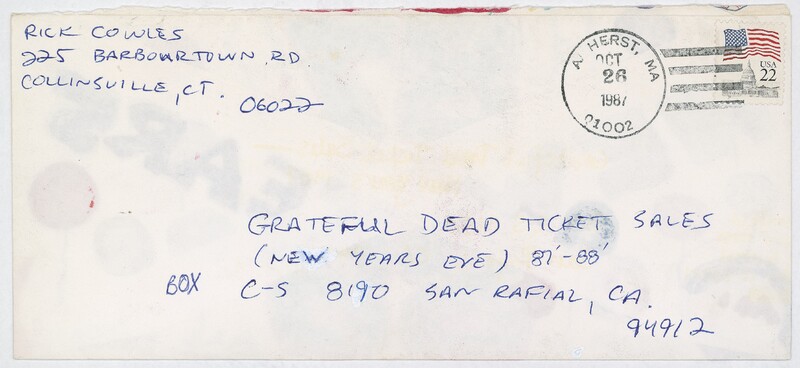 RICK COWLES
225 BARBOURTOWN RD
COLLINSVILLE, CT.
06022
AMHERST, MA
OCT
26
1987
01002
USA
22
GRATEFUL DEAD TICKET SALES
(NEW YEARS EVE) 87'-88'
BOX C-S 8190 SAN RAFIAL, CA.
94912